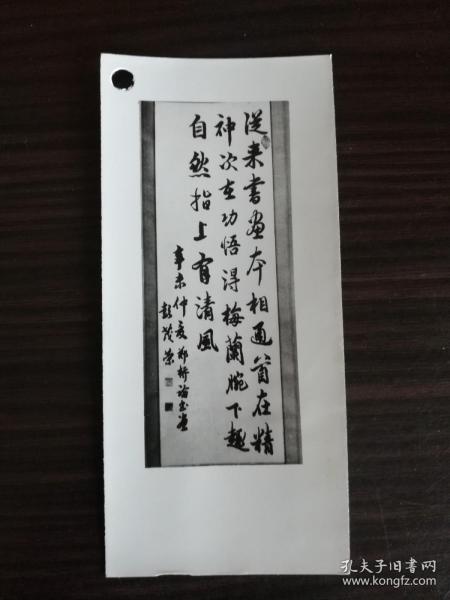 從来書画本相通首在精
神次在功悟得梅蘭腕下趣
自然指上有清風
辛未仲夏鄭板橋论书画
彭茂荣
孔夫子旧书网
www.kongfz.com